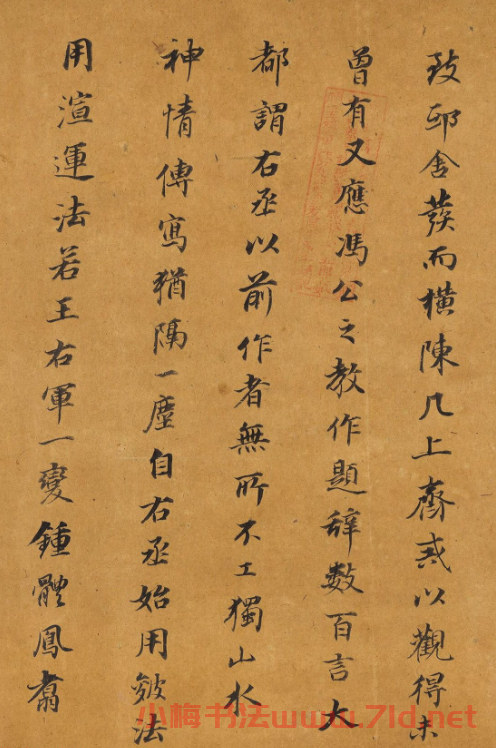 致邸舍發而橫陳几上齋戒以觀得未
曾有又應馮公之教作題辭數百言大
都謂右丞以前作者無所不工獨山水
神情傳寫猶隔一塵自右丞始用皴法
用渲運法若王右軍一變鍾體鳳翥
小梅书法www.7ld.net